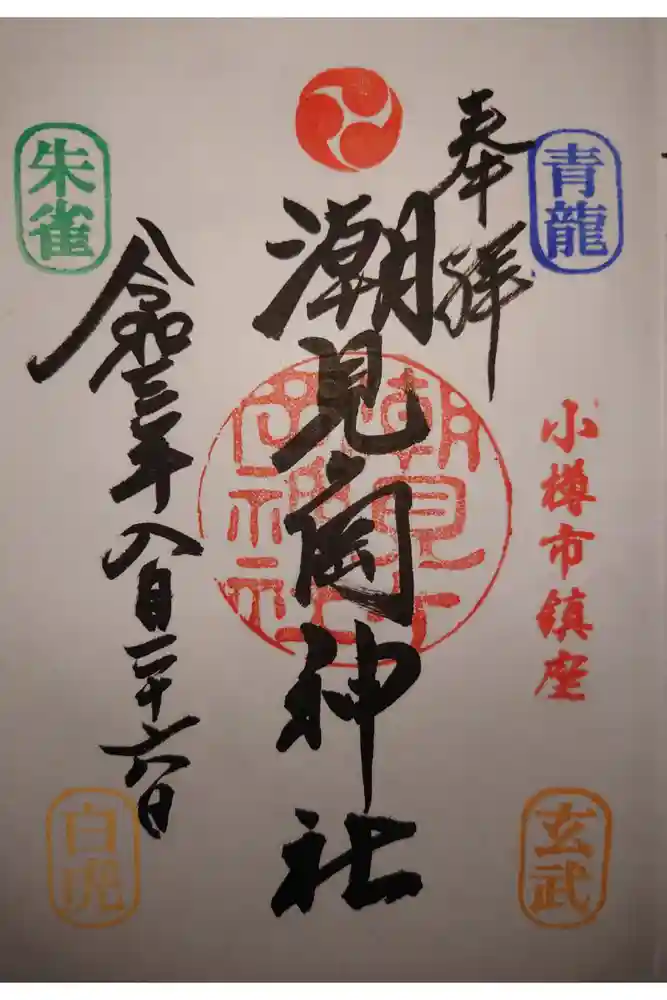 奉拝
青龍
小樽市鎮座
玄武
潮見岡神社
潮見岡神社
朱雀
令和三年八月二十六日
白虎